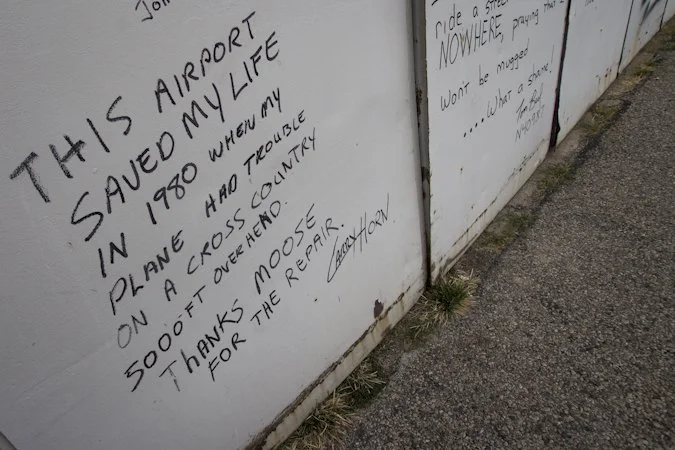 THIS AIRPORT
SAVED MY LIFE
IN 1980 WHEN MY
PLANE HAD TROUBLE
ON A CROSS COUNTRY
5000FT OVERHEAD.
THANKS MOOSE
FOR THE REPAIR.
LARRY HORN
ride a
NOWHERE, praying that
won't be mugged
....What a shame!